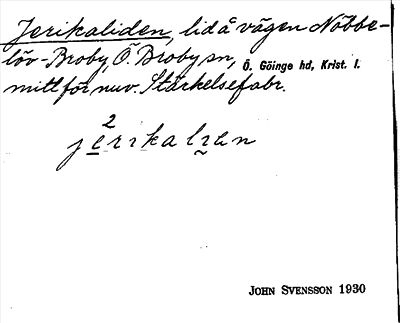 Jerikaliden, lid å vägen Nöbbe-
löv-Broby, Ö. Broby sn, Ö. Göinge hd, Krist. l.
mitt för nuv. Stärkelsefabr.
2
jerikalıen
JOHN SVENSSON 1930